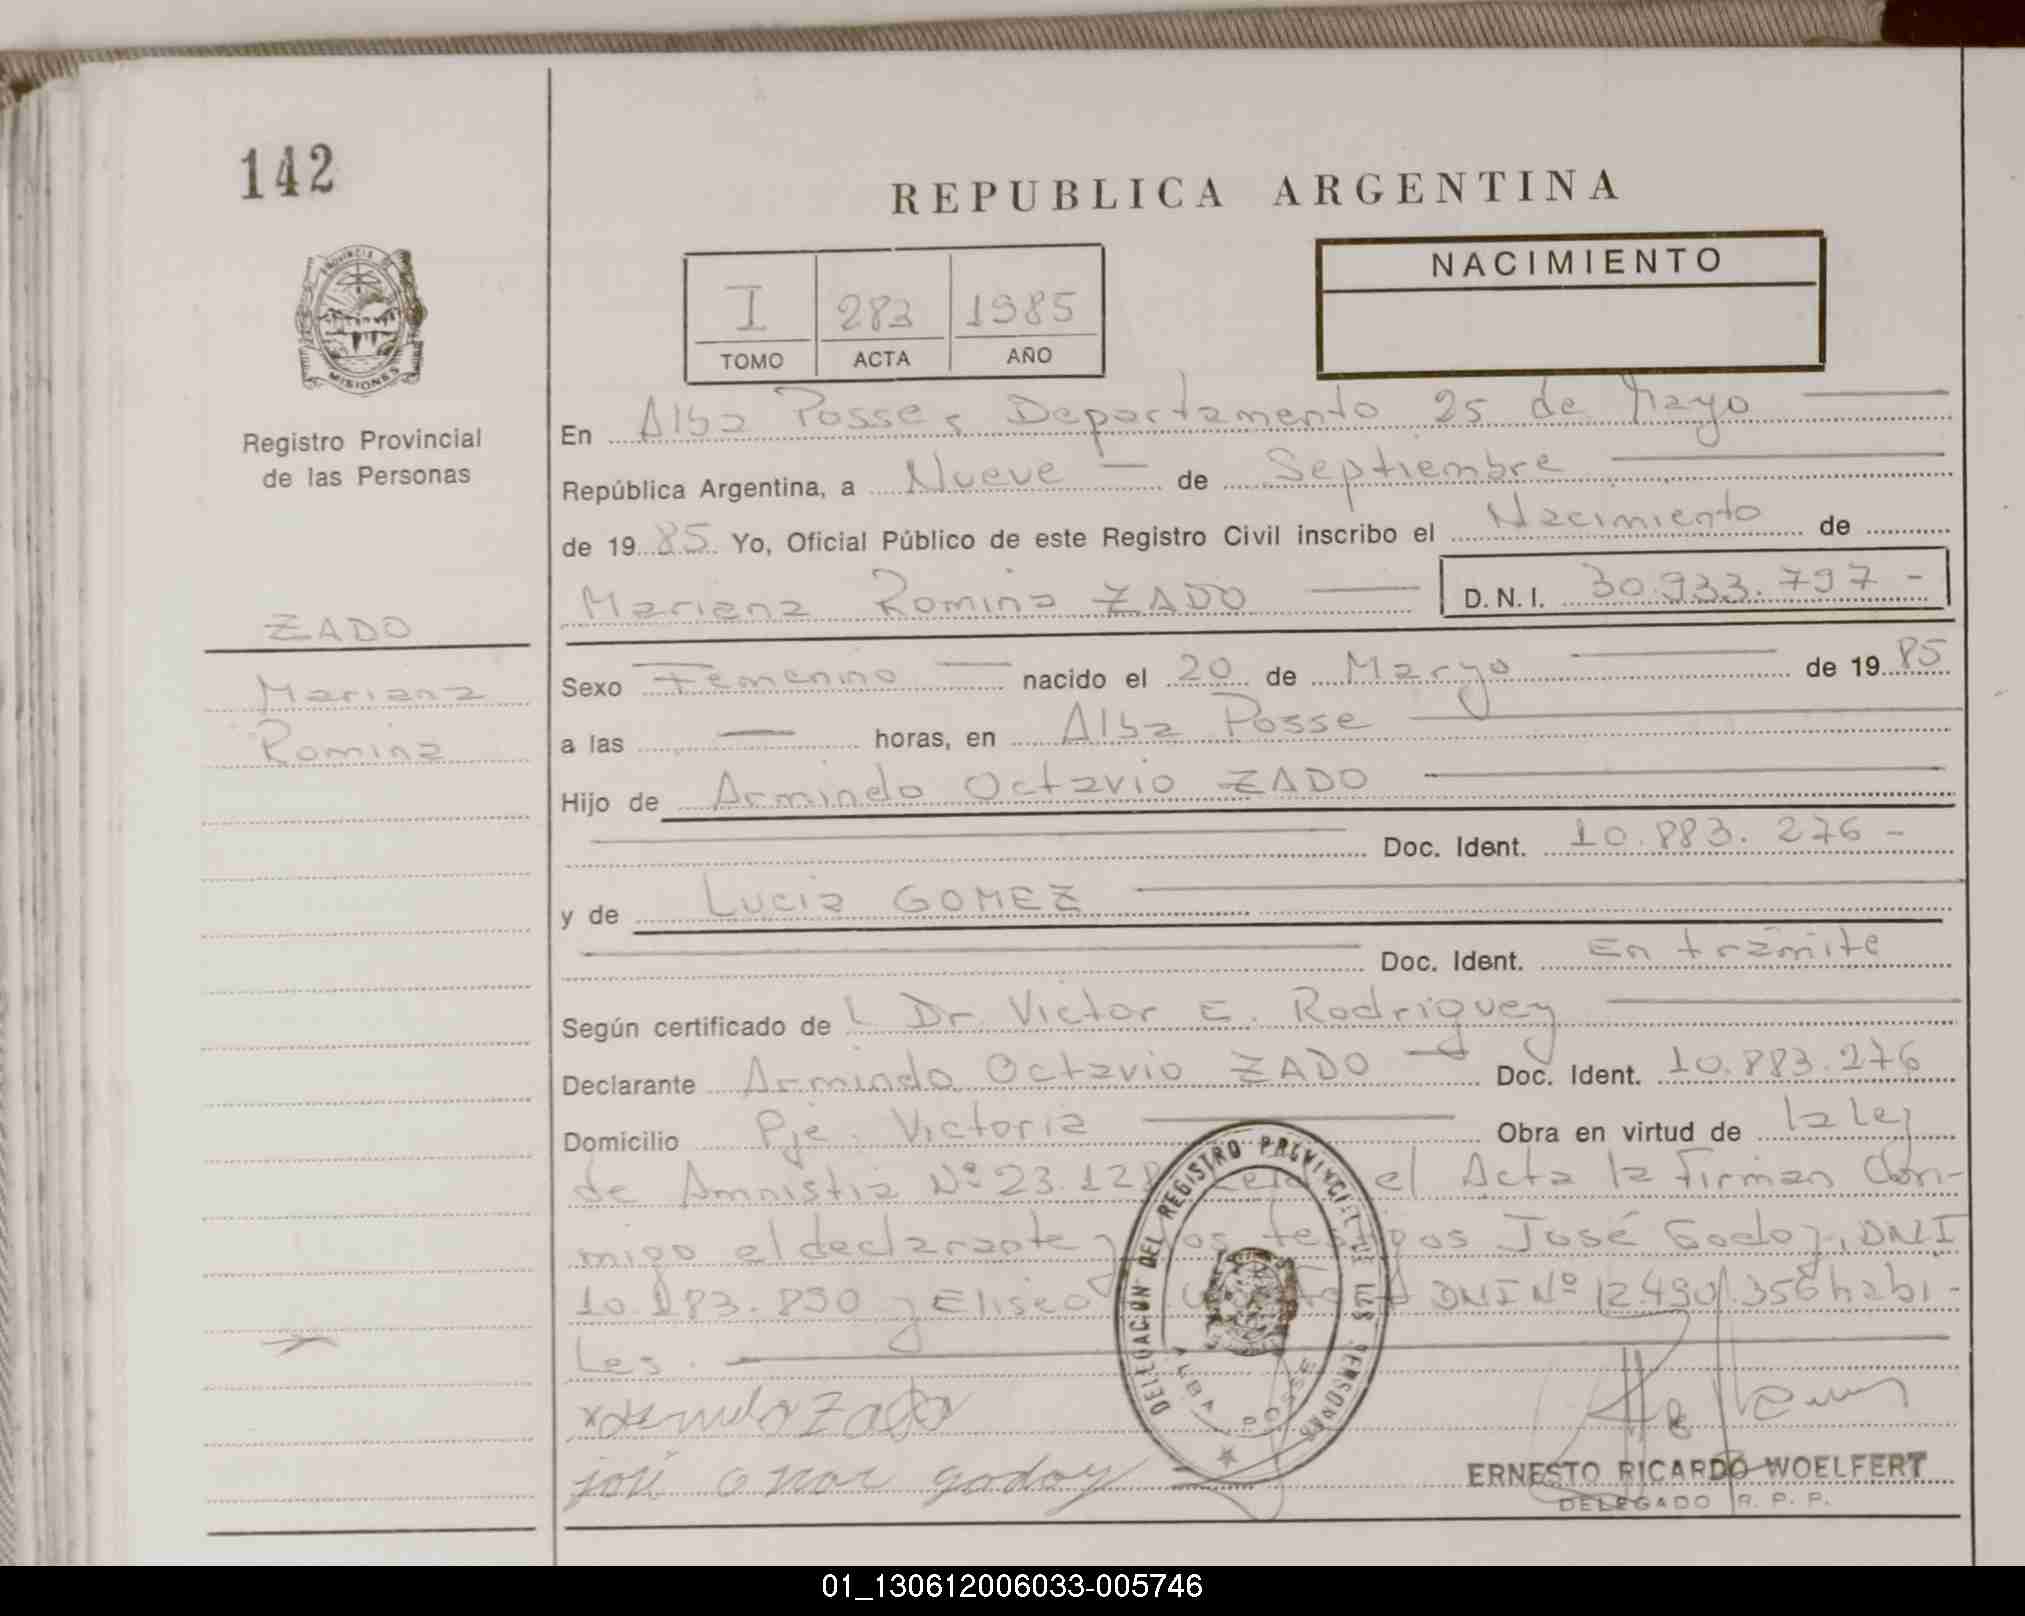 142
REPUBLICA ARGENTINA
PROVINCIA DE MISIONES
Registro Provincial
de las Personas
I 283 1985
TOMO ACTA AÑO
NACIMIENTO
En Alba Posse, Departamento 25 de Mayo
República Argentina, a Nueve de Septiembre
de 1985 Yo, Oficial Público de este Registro Civil inscribo el Nacimiento de
Mariana Romina ZADO D.N.I. 30.933.797-
ZADO
Mariana
Romina
Sexo Femenino nacido el 20 de Marzo de 1985
a las — horas, en Alba Posse
Hijo de Armindo Octavio ZADO
Doc. Ident. 10.883.276-
y de Lucia GOMEZ
Doc. Ident. En trámite
Según certificado de L Dr. Victor E. Rodriguez
Declarante Armindo Octavio ZADO Doc. Ident. 10.883.276
Domicilio Pje. Victoria Obra en virtud de la Ley
de Amnistia Nº 23.128 Leida el Acta la firman Con-
migo el declarante y los testigos José Godoy, DNI
10.183.890 y Eliseo DNI Nº 12.490.356 habi-
les.
Armindo Zado
josé omar godoy
DELEGACION DEL REGISTRO PROVINCIAL DE LAS PERSONAS
ALBA POSSE
ERNESTO RICARDO WOELFERT
DELEGADO R. P. P.
01_130612006033-005746